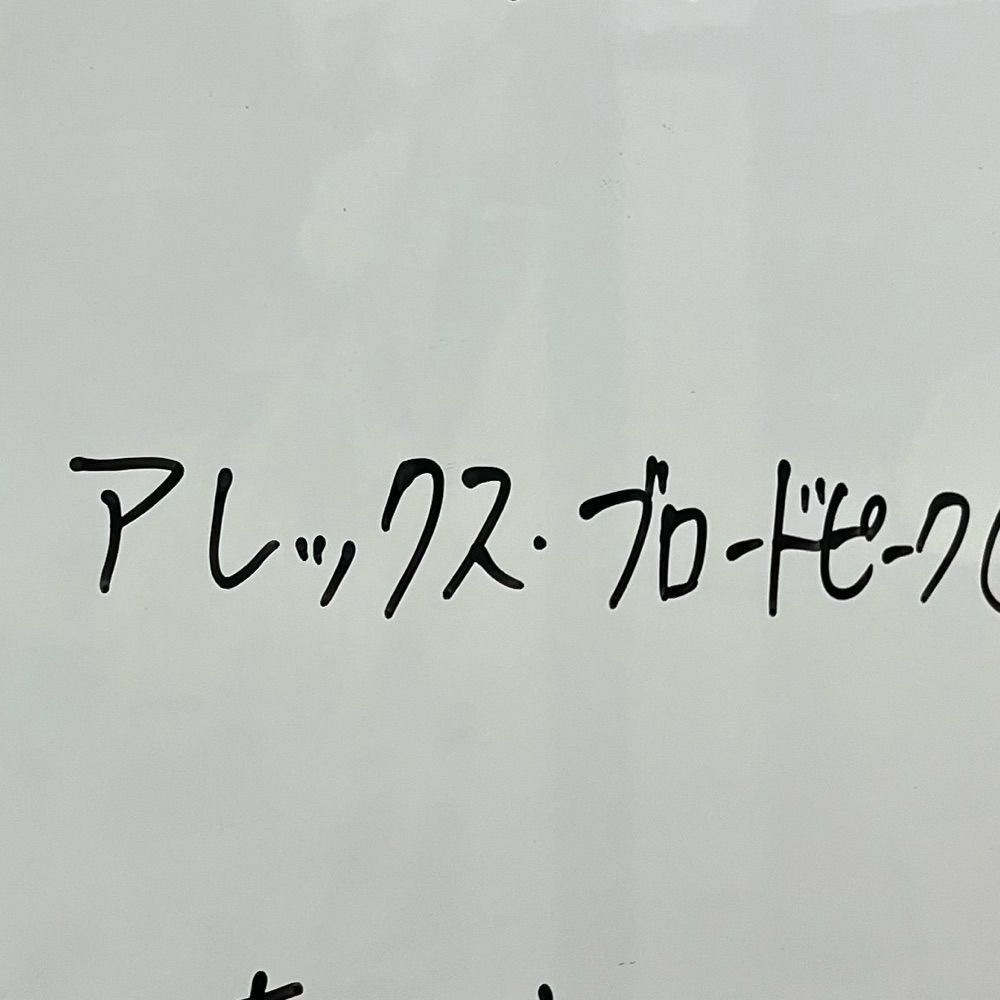 アレックス・ブロードピーク(